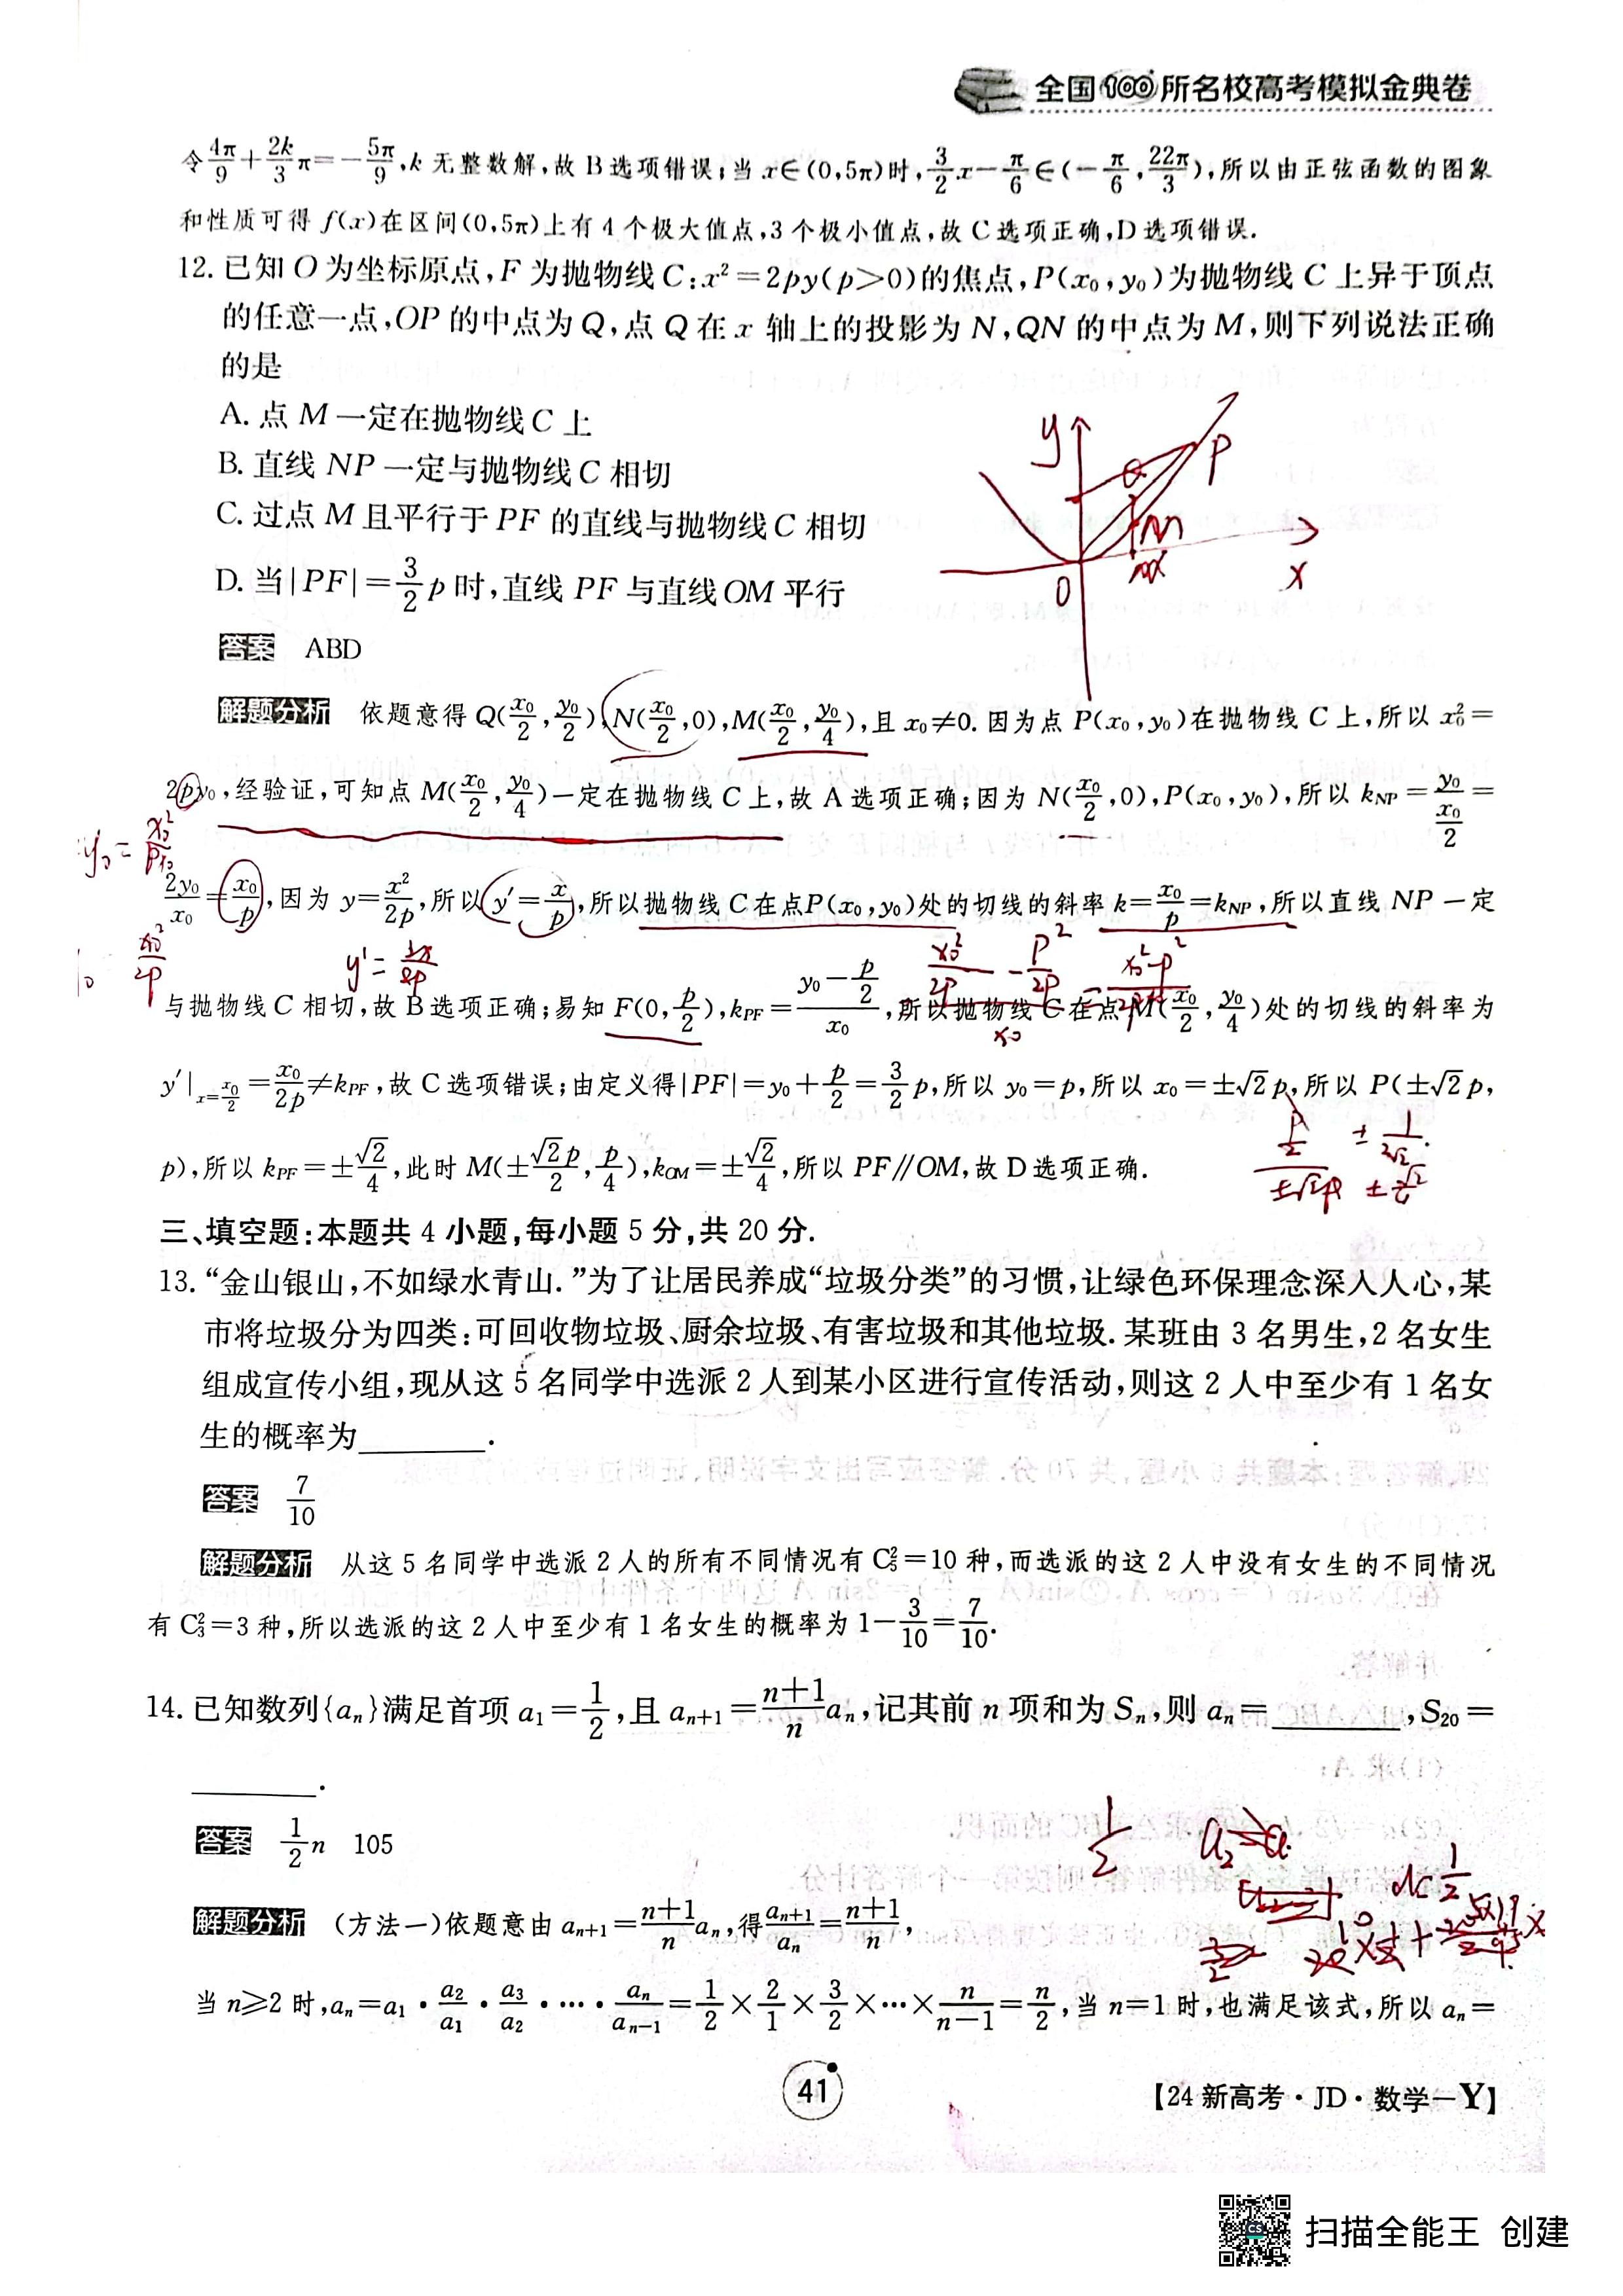 全国100所名校高考模拟金典卷
令4π/9+2k/3 π=-5π/9,k 无整数解,故 B 选项错误;当 x∈(0,5π)时,3/2 x-π/6∈(-π/6,22π/3),所以由正弦函数的图象
和性质可得 f(x)在区间(0,5π)上有 4 个极大值点,3 个极小值点,故 C 选项正确,D 选项错误.
12. 已知 O 为坐标原点,F 为抛物线 C:x²=2py(p>0)的焦点,P(x₀,y₀)为抛物线 C 上异于顶点
的任意一点,OP 的中点为 Q,点 Q 在 x 轴上的投影为 N,QN 的中点为 M,则下列说法正确
的是
A. 点 M 一定在抛物线 C 上
B. 直线 NP 一定与抛物线 C 相切
C. 过点 M 且平行于 PF 的直线与抛物线 C 相切
D. 当|PF|=3/2 p 时,直线 PF 与直线 OM 平行
y
P
Q
M
O
x
答案 ABD
解题分析 依题意得 Q(x₀/2,y₀/2),N(x₀/2,0),M(x₀/2,y₀/4),且 x₀≠0. 因为点 P(x₀,y₀)在抛物线 C 上,所以 x₀²=
2py₀,经验证,可知点 M(x₀/2,y₀/4)一定在抛物线 C 上,故 A 选项正确;因为 N(x₀/2,0),P(x₀,y₀),所以 k_NP=y₀/(x₀/2)=
2y₀/x₀=x₀/p,因为 y=x²/2p,所以 y′=x/p,所以抛物线 C 在点 P(x₀,y₀)处的切线的斜率 k=x₀/p=k_NP,所以直线 NP 一定
x₀²/2p
y'=2x/2p
x₀²/2p - p²/2p = x₀²-p²
x₀
与抛物线 C 相切,故 B 选项正确;易知 F(0,p/2),k_PF=(y₀-p/2)/x₀,所以抛物线 C 在点 M(x₀/2,y₀/4)处的切线的斜率为
y′|x=x₀/2=x₀/2p≠k_PF,故 C 选项错误;由定义得|PF|=y₀+p/2=3/2 p,所以 y₀=p,所以 x₀=±√2p,所以 P(±√2p,
p),所以 k_PF=±√2/4,此时 M(±√2p/2,p/4),k_OM=±√2/4,所以 PF∥OM,故 D 选项正确.
p/2 ± 1/2√2.
±√2p
三、填空题:本题共 4 小题,每小题 5 分,共 20 分.
13. “金山银山,不如绿水青山.”为了让居民养成“垃圾分类”的习惯,让绿色环保理念深入人心,某
市将垃圾分为四类:可回收物垃圾、厨余垃圾、有害垃圾和其他垃圾. 某班由 3 名男生,2 名女生
组成宣传小组,现从这 5 名同学中选派 2 人到某小区进行宣传活动,则这 2 人中至少有 1 名女
生的概率为________.
答案 7/10
解题分析 从这 5 名同学中选派 2 人的所有不同情况有 C₅²=10 种,而选派的这 2 人中没有女生的不同情况
有 C₃²=3 种,所以选派的这 2 人中至少有 1 名女生的概率为 1-3/10=7/10.
14. 已知数列{aₙ}满足首项 a₁=1/2,且 aₙ₊₁=(n+1)/n aₙ,记其前 n 项和为 Sₙ,则 aₙ=________,S₂₀=
________.
答案 1/2 n 105
1/2
d=1/2
解题分析 (方法一)依题意由 aₙ₊₁=(n+1)/n aₙ,得 aₙ₊₁/aₙ=(n+1)/n,
当 n≥2 时,aₙ=a₁·a₂/a₁·a₃/a₂·…·aₙ/aₙ₋₁=1/2×2/1×3/2×…×n/(n-1)=n/2,当 n=1 时,也满足该式,所以 aₙ=
41
【24 新高考·JD·数学-Y】
扫描全能王 创建